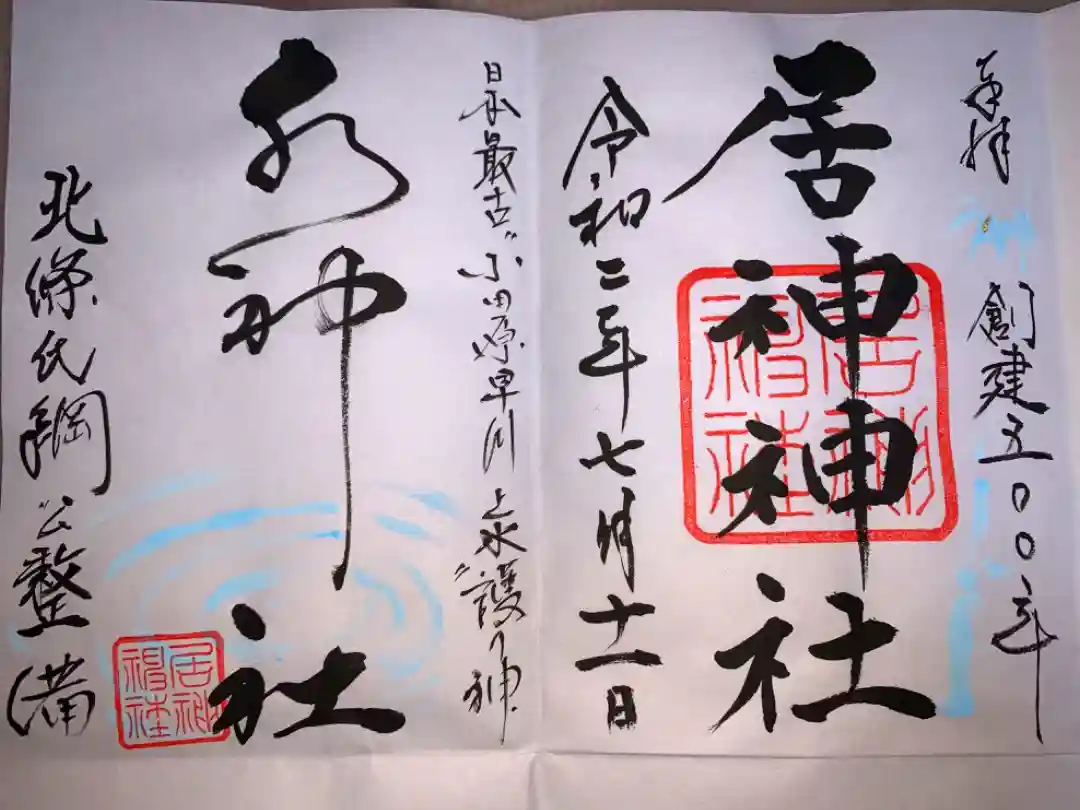 奉拝
創建五〇〇年
居神神社
居神神社
令和二年七月十一日
日本最古〝小田原早川上水〟護り神
水神社
北條氏綱公整備
居神神社